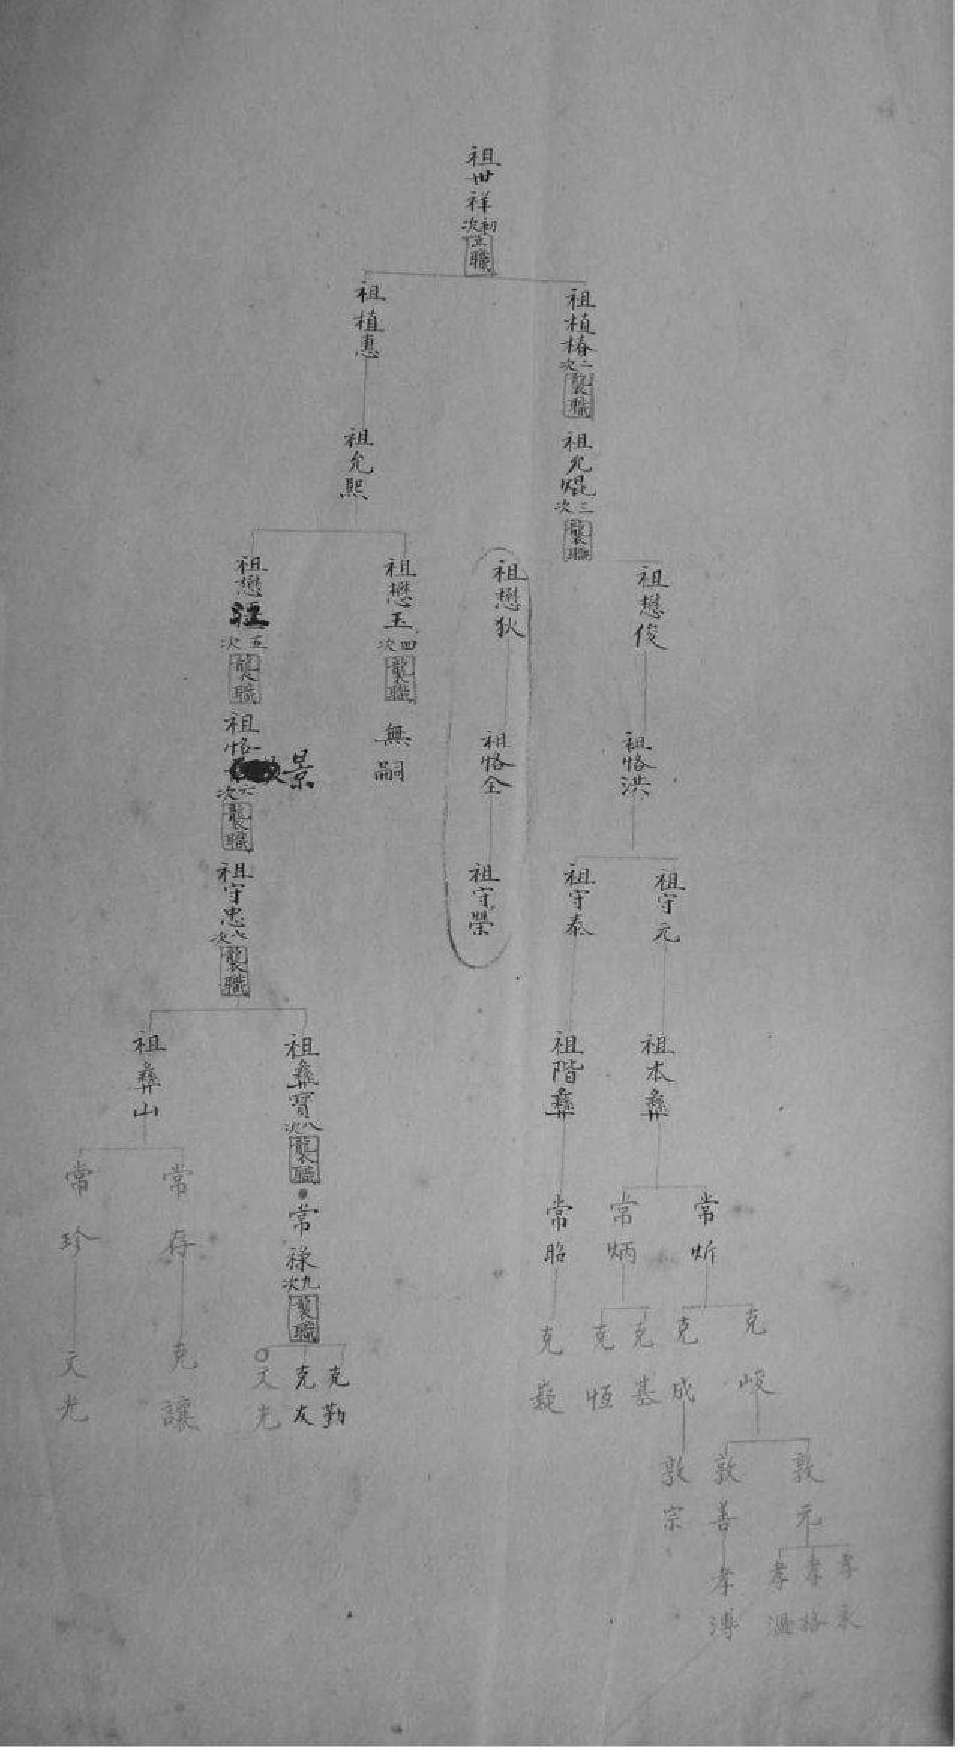 祖世祥 初次立職
祖植椿 二次襲職
祖植惠
祖允焜 三次襲職
祖允熙
祖懋俊
祖懋狄
祖懋玉 四次襲職
無嗣
祖懋 五次襲職
祖恪洪
祖恪全
祖恪景 六次襲職
祖守元
祖守泰
祖守榮
祖守忠 次襲職
祖本彝
祖階彝
祖彝寶 八次襲職
祖彝山
常炘
常炳
常昭
常祿 九次襲職
常存
常珍
克峻
克成
克基
克恆
克嶷
克勤
克友
文光
克讓
文光
敦元
敦善
敦宗
孝永
孝格
孝溫
孝溥